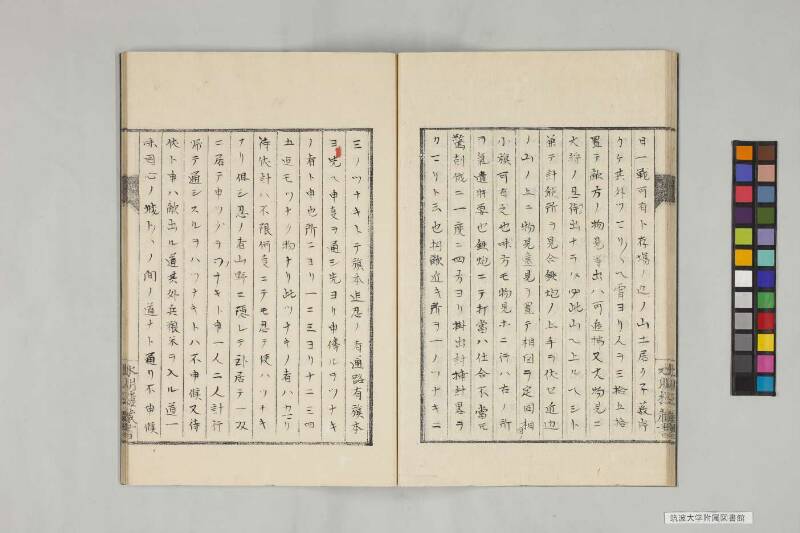 日一戦可有ト存場ハ近ノ山土居リ子薮片
カケ共外ツマリ〱ヘ宵ヨリ人ヲ三拾五拾
置テ敵方ノ物見等出ハ可追帰又大物見ニ
大将ノ是衛出ナラハ必此山ヘ上ルヘシト
兼テ計能所ヲ見合鉄炮ノ上手ヲ伏セ近辺
ノ山ノ上ニ物見遠見ヲ置テ相図ヲ定同相
小旗可有之也味方モ物見ホニ行ハ右ノ所
ヲ気遣肝要也鉄炮ニテ打当ハ仕合不当モ
驚刻伏ニ一度ニ四方ヨリ掛出討捕計略ヲ
カマリト云也扨敵近キ所ヲ一ノツナキニ
三ノツナキトシテ旗本迄忍ノ者通路有旗本
ヨリ先ヘ申事ヲ通シ先ヨリ申傳ルヲツナキ
ノ者ト申也所ニヨリ一二三ヨリ十二三四
五迄モツナク物ナリ此ツナキノ者ハカマリ
待伏計ハ不限何事ニテモ忍テ使ハツナキ
ナリ但シ忍ノ者山野ニ隠レテ臥居テ一双
ニ居テ申ツヅヲツナキト申一人二人計行
帰テ通シスルヲハツナキトハ不申候又待
伏ト申ハ敵出ル道其外兵粮米ヲ入ル道一
味同心ノ城トノ間ノ道ナト通リ不申候
筑波大学附属図書館